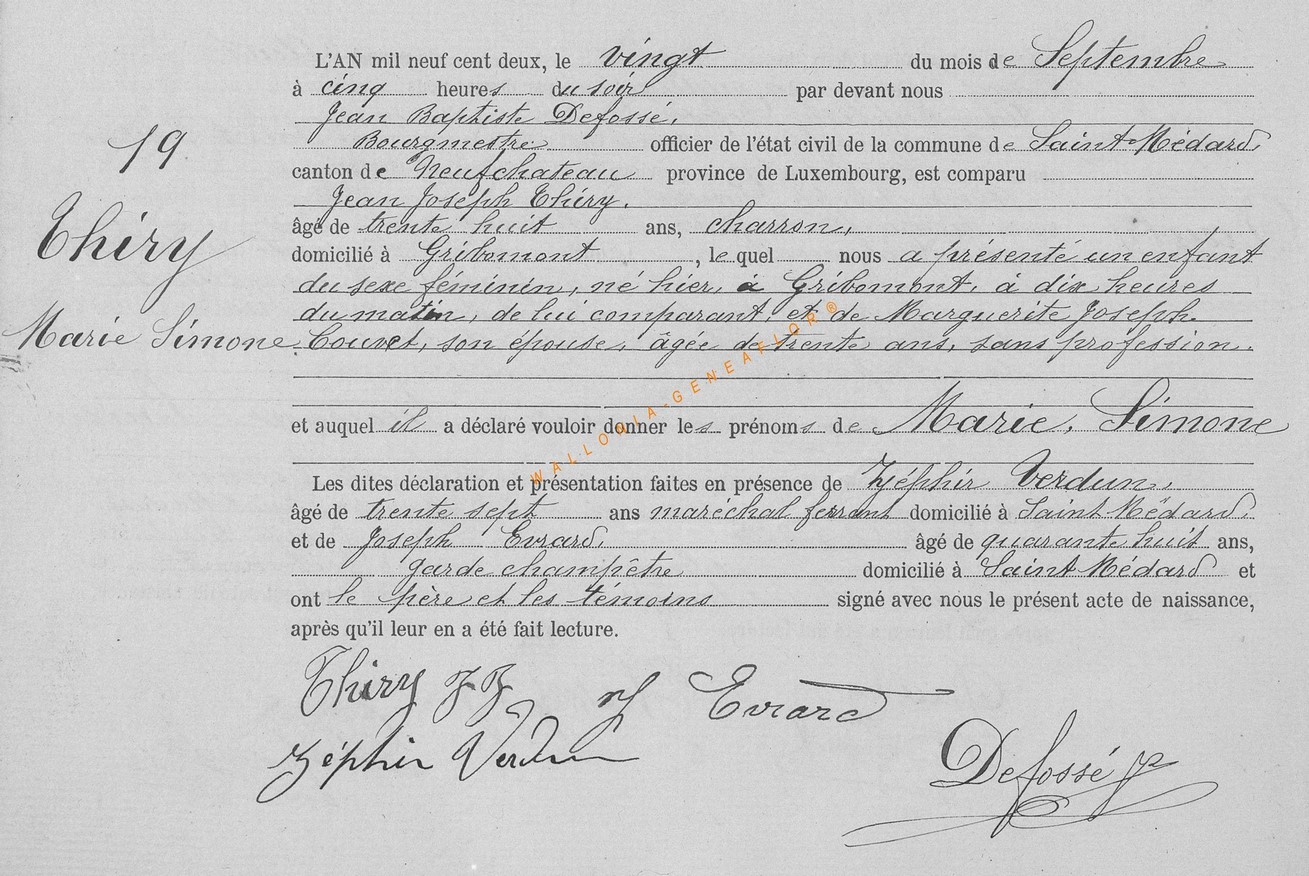 L'AN mil neuf cent deux, le vingt du mois de Septembre
à cinq heures du soir par devant nous
Jean Baptiste Defossé,
19
Bourgmestre officier de l'état civil de la commune de Saint-Médard
canton de Neufchateau province de Luxembourg, est comparu
Jean Joseph Thiry,
Thiry
âgé de trente huit ans, charron,
domicilié à Gribomont, le quel nous a présenté un enfant
du sexe féminin, né hier, à Gribomont, à dix heures
du matin, de lui comparant et de Marguerite Joseph.
Marie Simone
Couvet, son épouse, âgée de trente ans, sans profession.
WALLONIA-GENEAFLOR ®
et auquel il a déclaré vouloir donner les prénoms de Marie, Simone
Les dites déclaration et présentation faites en présence de Zéphir Verdun,
âgé de trente sept ans maréchal ferrant domicilié à Saint Médard,
et de Joseph Evrard, âgé de quarante huit ans,
garde champêtre domicilié à Saint Médard et
ont le père et les témoins signé avec nous le présent acte de naissance,
après qu'il leur en a été fait lecture.
Thiry J J Evrard
Zéphir Verdun
Defossé